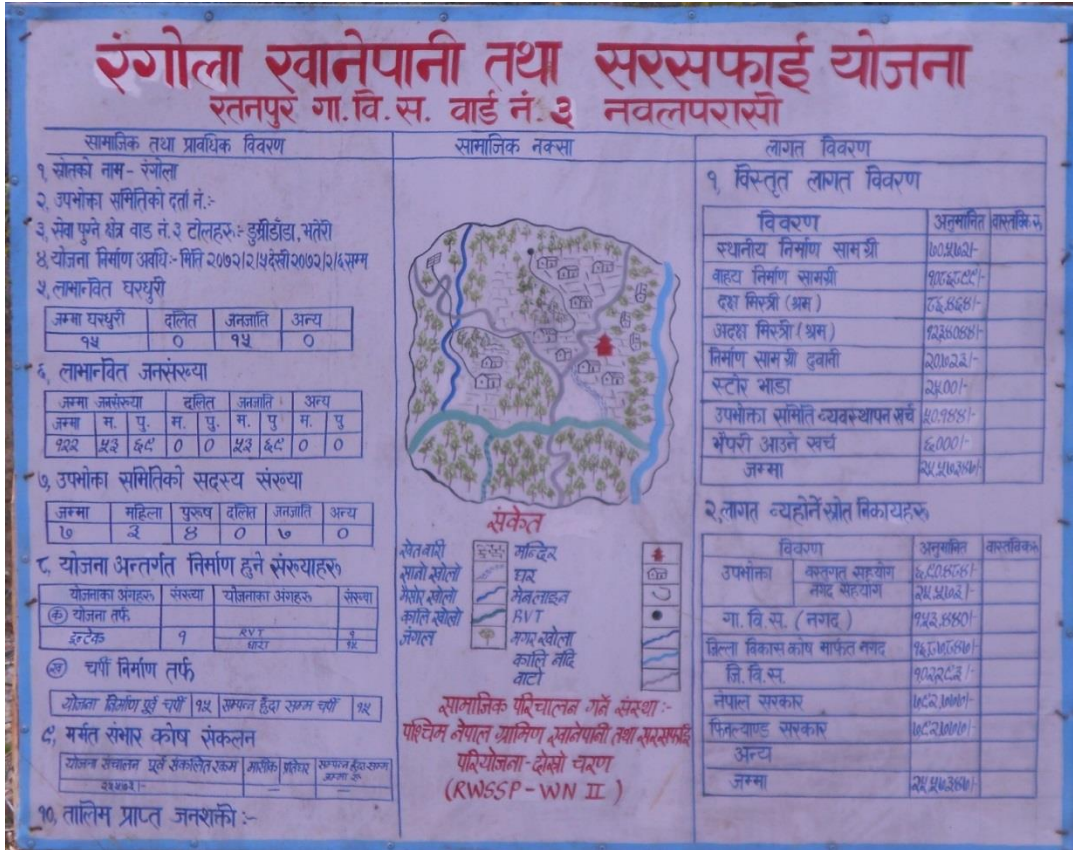 रंगोला खानेपानी तथा सरसफाई योजना
रतनपुर गा.वि.स. वार्ड नं. ३ नवलपरासी
सामाजिक तथा प्रावधिक विवरण
१, स्रोतको नाम - रंगोला
२, उपभोक्ता समितिको दर्ता नं.:-
३, सेवा पुग्ने क्षेत्र वाड नं. ३ टोलहरु:- डुम्रीडाँडा, भतेरी
४, योजना निर्माण अवधि:- मिति २०७२/२/५देखी२०७२/२/६सम्म
५, लाभान्वित घरधुरी
जम्मा घरधुरी दलित जनजाति अन्य
१५ ० १५ ०
६, लाभान्वित जनसंख्या
जम्मा जनसंख्या दलित जनजाति अन्य
जम्मा म. पु. म. पु. म. पु म. पु
१२२ ५३ ६९ ० ० ५३ ६९ ० ०
७, उपभोक्ता समितिको सदस्य संख्या
जम्मा महिला पुरुष दलित जनजाति अन्य
७ ३ ४ ० ७ ०
८, योजना अन्तर्गत निर्माण हुने संख्याहरु
योजनाका अंगहरु संख्या योजनाका अंगहरु संख्या
(क) योजना तर्फ
इन्टेक १ RVT १
धारा १५
(ख) चर्पी निर्माण तर्फ
योजना निर्माण पूर्व चर्पी १५ सम्पन्न हुँदा सम्म चर्पी १५
९, मर्मत संभार कोष संकलन
योजना संचालन पूर्व संकलित रकम मासिक प्रतिघर सम्पन्न हुँदा सम्म जम्मा रु
— —
१०, तालिम प्राप्त जनशक्ती:-
सामाजिक नक्सा
संकेत
खेतबारी मन्दिर
सानो खोलो घर
मेनलाइन
कालि खोलो RVT
जंगल मगर खोला
कालि नदि
वाटो
सामाजिक परिचालन गर्ने संस्था:-
पश्चिम नेपाल ग्रामिण खानेपानी तथा सरसफाई
परियोजना-दोस्रो चरण
(RWSSP-WN II)
लागत विवरण
१, विस्तृत लागत विवरण
विवरण अनुमानित वास्तविक रु
स्थानीय निर्माण सामग्री
वाहय निर्माण सामग्री
दक्ष मिस्त्री (श्रम)
अदक्ष मिस्त्री (श्रम)
निर्माण सामग्री दुवानी
स्टोर भाडा २५००।-
उपभोक्ता समिति व्यवस्थापन खर्च
भैपरी आउने खर्च ६०००।-
जम्मा
२, लागत व्यहोर्ने स्रोत निकायहरु
विवरण अनुमानित वास्तविक रु
उपभोक्ता वस्तुगत सहयोग
नगद सहयोग
गा.वि.स. (नगद)
जिल्ला विकास कोष मार्फत नगद
जि.वि.स.
नेपाल सरकार
फिनल्याण्ड सरकार
अन्य
जम्मा